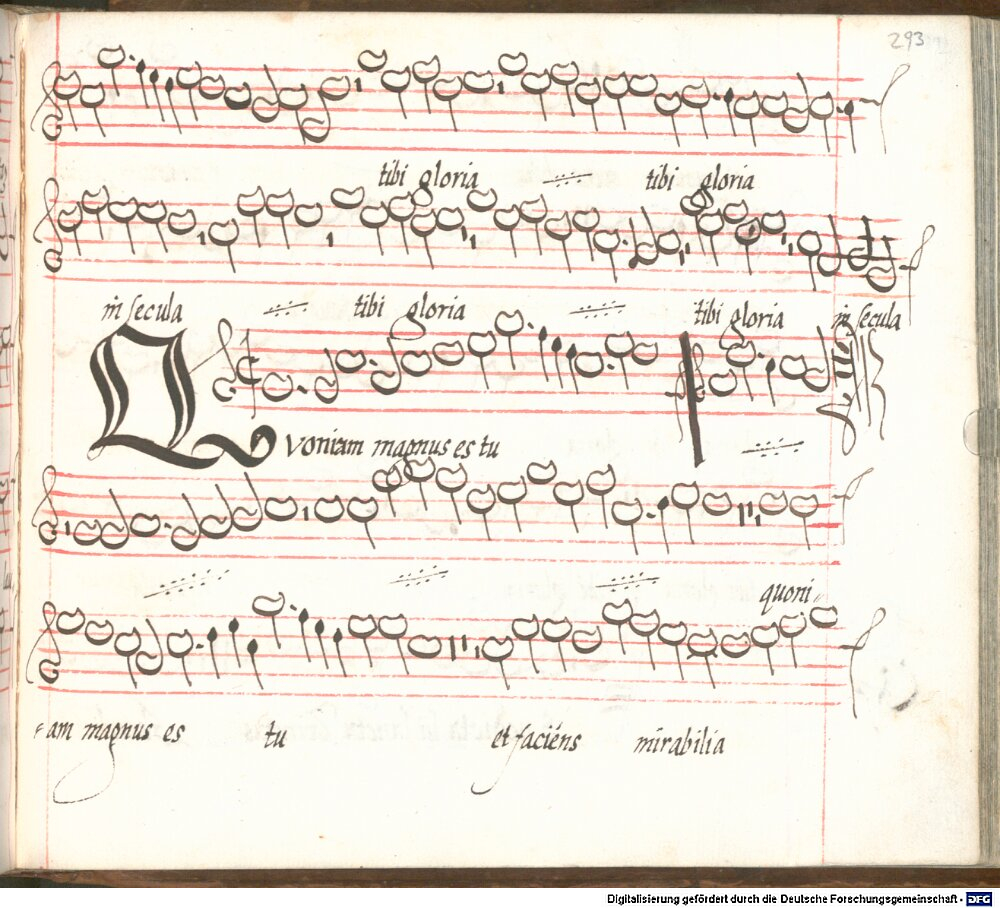 293
tibi gloria tibi gloria
in secula tibi gloria tibi gloria in secula
Quoniam magnus es tu
quoni-
-am magnus es tu et faciens mirabilia
Digitalisierung gefördert durch die Deutsche Forschungsgemeinschaft - DFG